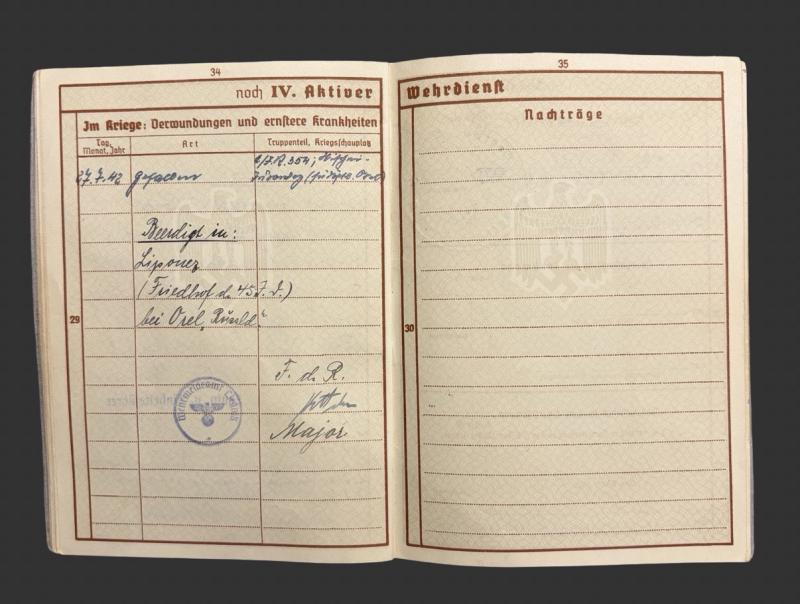 34
noch IV. Aktiver
Im Kriege: Verwundungen und ernstere Krankheiten
Tag, Monat, Jahr
Art
Truppenteil, Kriegsschauplatz
27.7.42 gefallen
J.R. 354;
Beerdigt in:
(Friedhof d. 45 J.D.)
bei Orel „Rußld.“
29
F. d. R.
Major
Wehrmeldeamt
35
Wehrdienst
Nachträge
30